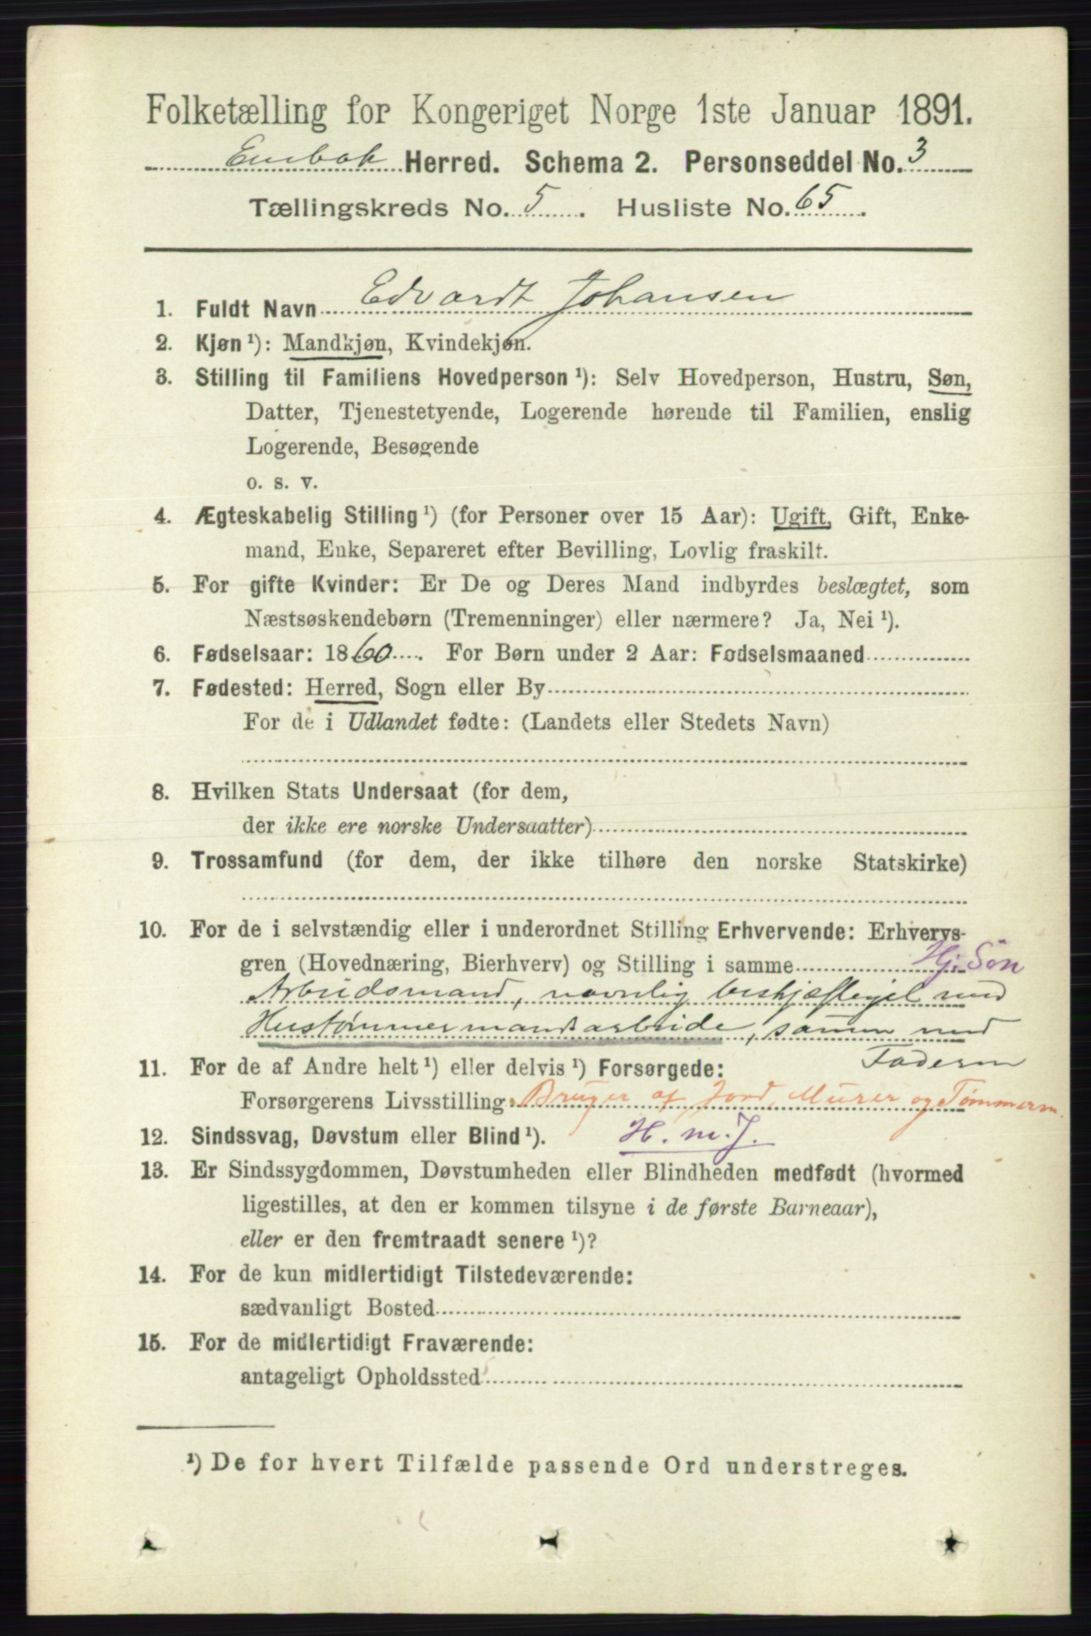 Folketælling for Kongeriget Norge 1ste Januar 1891.
Enebak Herred. Schema 2. Personseddel No. 3
Tællingskreds No. 5. Husliste No. 65.
1. Fuldt Navn Edvardt Johansen
2. Kjøn ¹): Mandkjøn, Kvindekjøn.
3. Stilling til Familiens Hovedperson ¹): Selv Hovedperson, Hustru, Søn,
Datter, Tjenestetyende, Logerende hørende til Familien, enslig
Logerende, Besøgende
o. s. v.
4. Ægteskabelig Stilling ¹) (for Personer over 15 Aar): Ugift, Gift, Enke-
mand, Enke, Separeret efter Bevilling, Lovlig fraskilt.
5. For gifte Kvinder: Er De og Deres Mand indbyrdes beslægtet, som
Næstsøskendebørn (Tremenninger) eller nærmere? Ja, Nei ¹).
6. Fødselsaar: 1860. For Børn under 2 Aar: Fødselsmaaned
7. Fødested: Herred, Sogn eller By
For de i Udlandet fødte: (Landets eller Stedets Navn)
8. Hvilken Stats Undersaat (for dem,
der ikke ere norske Undersaatter)
9. Trossamfund (for dem, der ikke tilhøre den norske Statskirke)
10. For de i selvstændig eller i underordnet Stilling Erhvervende: Erhvervs-
gren (Hovednæring, Bierhverv) og Stilling i samme Hj. Søn
Arbeidsmand, navnlig beskjæftiget med
Hustømmermandsarbeide, samen med
Faderen
11. For de af Andre helt ¹) eller delvis ¹) Forsørgede:
Forsørgerens Livsstilling Bruger af Jord, Murer og Tømmerm.
12. Sindssvag, Døvstum eller Blind ¹). H. m. J.
13. Er Sindssygdommen, Døvstumheden eller Blindheden medfødt (hvormed
ligestilles, at den er kommen tilsyne i de første Barneaar),
eller er den fremtraadt senere ¹)?
14. For de kun midlertidigt Tilstedeværende:
sædvanligt Bosted
15. For de midlertidigt Fraværende:
antageligt Opholdssted
¹) De for hvert Tilfælde passende Ord understreges.